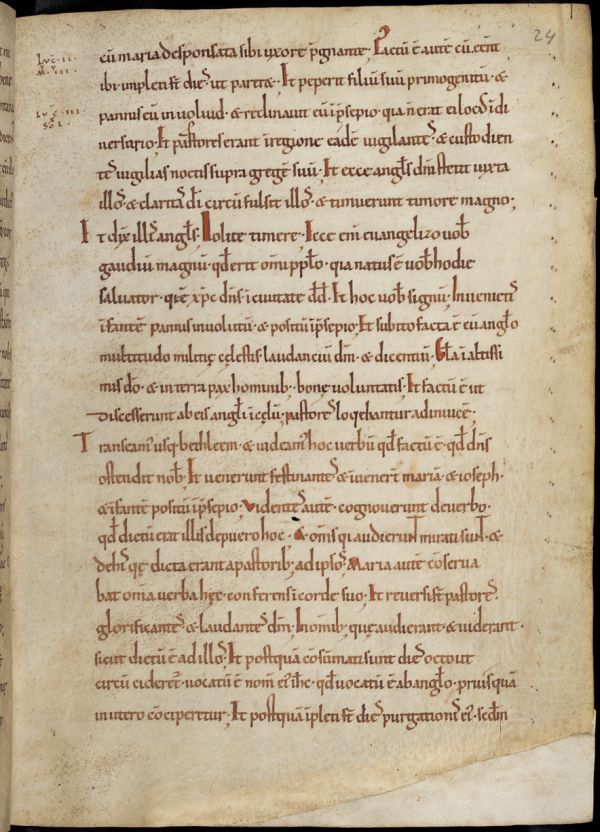 24
Luc. II.
M. V.
cū maria desponsata sibi uxore p̄gnante. Factū ē autē cū eēnt
ibi impleti sr̄ dies ut pareret. Et peperit filiū suū primogenitū. &
pannis eū inuoluit. & reclinauit eū ip̄sepio. quia n̄ erat ei loc̄ i di
uersorio. Et pastores erant i regione eadē uigilantes. & custodien
tes uigilias noctis supra gregē suū. Et ecce angl̄s dn̄i stetit iuxta
illos. & claritas dī circū fulsit illos. & timuerunt timore magno;
Et dix̄ illis angl̄s. Nolite timere. Ecce eni euangelizo uob̄
gaudiū magnū. qd̄ erit om̄i pplo. quia natus ē uob̄ hodie
saluator. quē xp̄c dn̄s i ciuitate dd̄. Et hoc uob̄ signū. Inuenietis
īfantē pannis inuolutū. & positū ip̄sepio. Et subito facta ē cū anglo
multitudo militię cęlestis. laudanciū dm̄. & dicentiū. Gl̄a i altissi
mis dō. & in terra pax hominib; bonę uoluntatis. Et factū ē ut
discesserunt ab eis angli i cęlū; pastores loq̄bantur adinuicē;
Transeam; usq; bethleem. & uideam; hoc uerbū qd̄ factū ē. qd̄ dn̄s
ostendit nob̄. Et uenerunt festinantes & iuener̄t mariā. & ioseph.
& īfantē positū ip̄sepio. Videntes autē. cognouerunt de uerbo.
qd̄ dictū erat illis de puero hoc. & om̄s qui audierunt mirati sunt. &
de his quę dicta erant a pastorib; ad ipsos. Maria autē cōserua
bat om̄ia uerba hęc conferens i corde suo. Et reuersi sr̄ pastores.
glorificantes & laudantes dm̄. In om̄ib; quę audierant. & uiderant.
sicut dictū ē ad illos. Et postquā cōsūmati sunt dies octo ut
circū cideret. uocatū ē nom̄ ei; ih̄c. qd̄ uocatū ē ab anglo. priusquā
in utero cōciperetur. Et postquā ipleti sr̄ dies purgationis ei; scdm̄